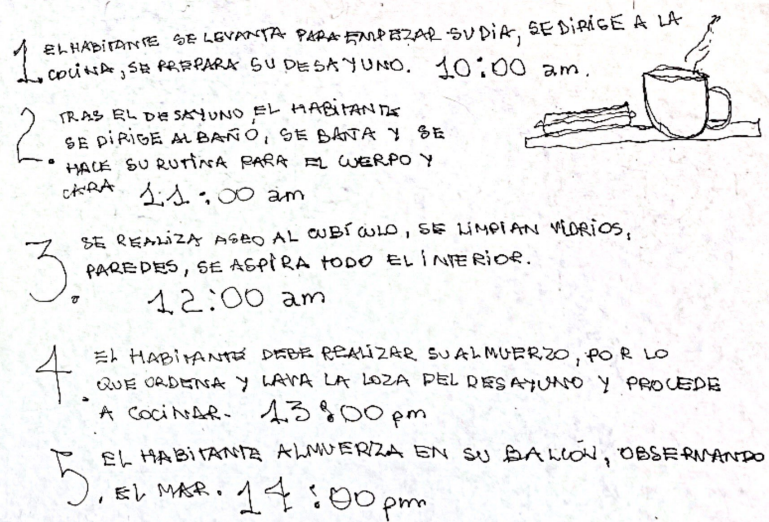 1. EL HABITANTE SE LEVANTA PARA EMPEZAR SU DIA, SE DIRIGE A LA
COCINA, SE PREPARA SU DESAYUNO. 10:00 am.
2. TRAS EL DESAYUNO EL HABITANTE
SE DIRIGE AL BAÑO, SE BAÑA Y SE
HACE SU RUTINA PARA EL CUERPO Y
CARA 11:00 am
3. SE REALIZA ASEO AL CUBÍCULO, SE LIMPIAN VIDRIOS,
PAREDES, SE ASPIRA TODO EL INTERIOR.
12:00 am
4. EL HABITANTE DEBE REALIZAR SU ALMUERZO, POR LO
QUE ORDENA Y LAVA LA LOZA DEL DESAYUNO Y PROCEDE
A COCINAR. 13:00 pm
5. EL HABITANTE ALMUERZA EN SU BALCÓN, OBSERVANDO
EL MAR. 14:00 pm